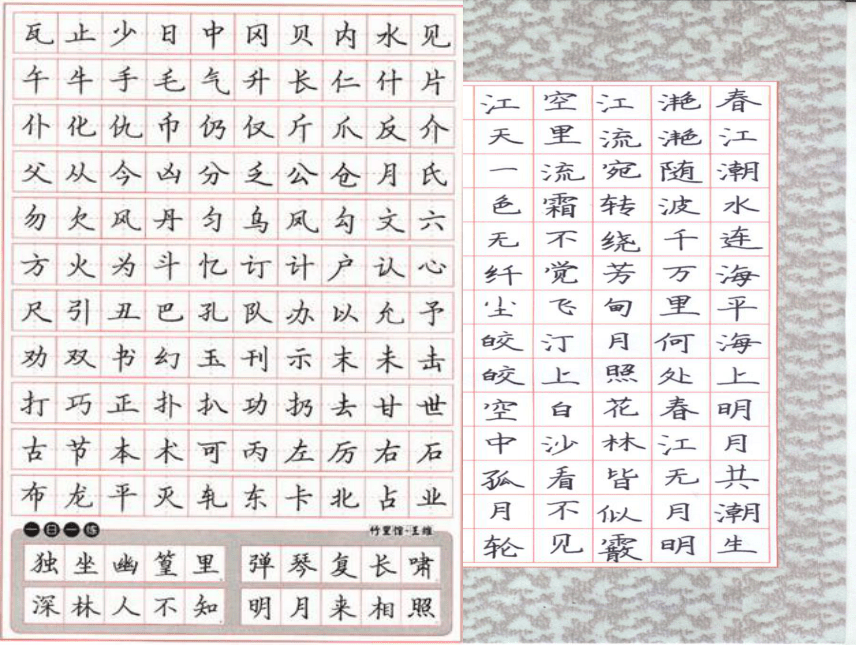 瓦止少日中冈贝内水见
午牛手毛气升长仁什片
仆化仇币仍仅斤爪反介
父从今凶分乏公仓月氏
勿欠风丹匀乌凤勾文六
方火为斗忆订计户认心
尺引丑巴孔队办以允予
劝双书幻玉刊示末未击
打巧正扑扒功扔去甘世
古节本术可丙左厉右石
布龙平灭轧东卡北占业
一日一练
竹里馆·王维
独坐幽篁里
弹琴复长啸
深林人不知
明月来相照
春江潮水连海平海上明月共潮生
滟滟随波千万里何处春江无月明
江流宛转绕芳甸月照花林皆似霰
空里流霜不觉飞汀上白沙看不见
江天一色无纤尘皎皎空中孤月轮